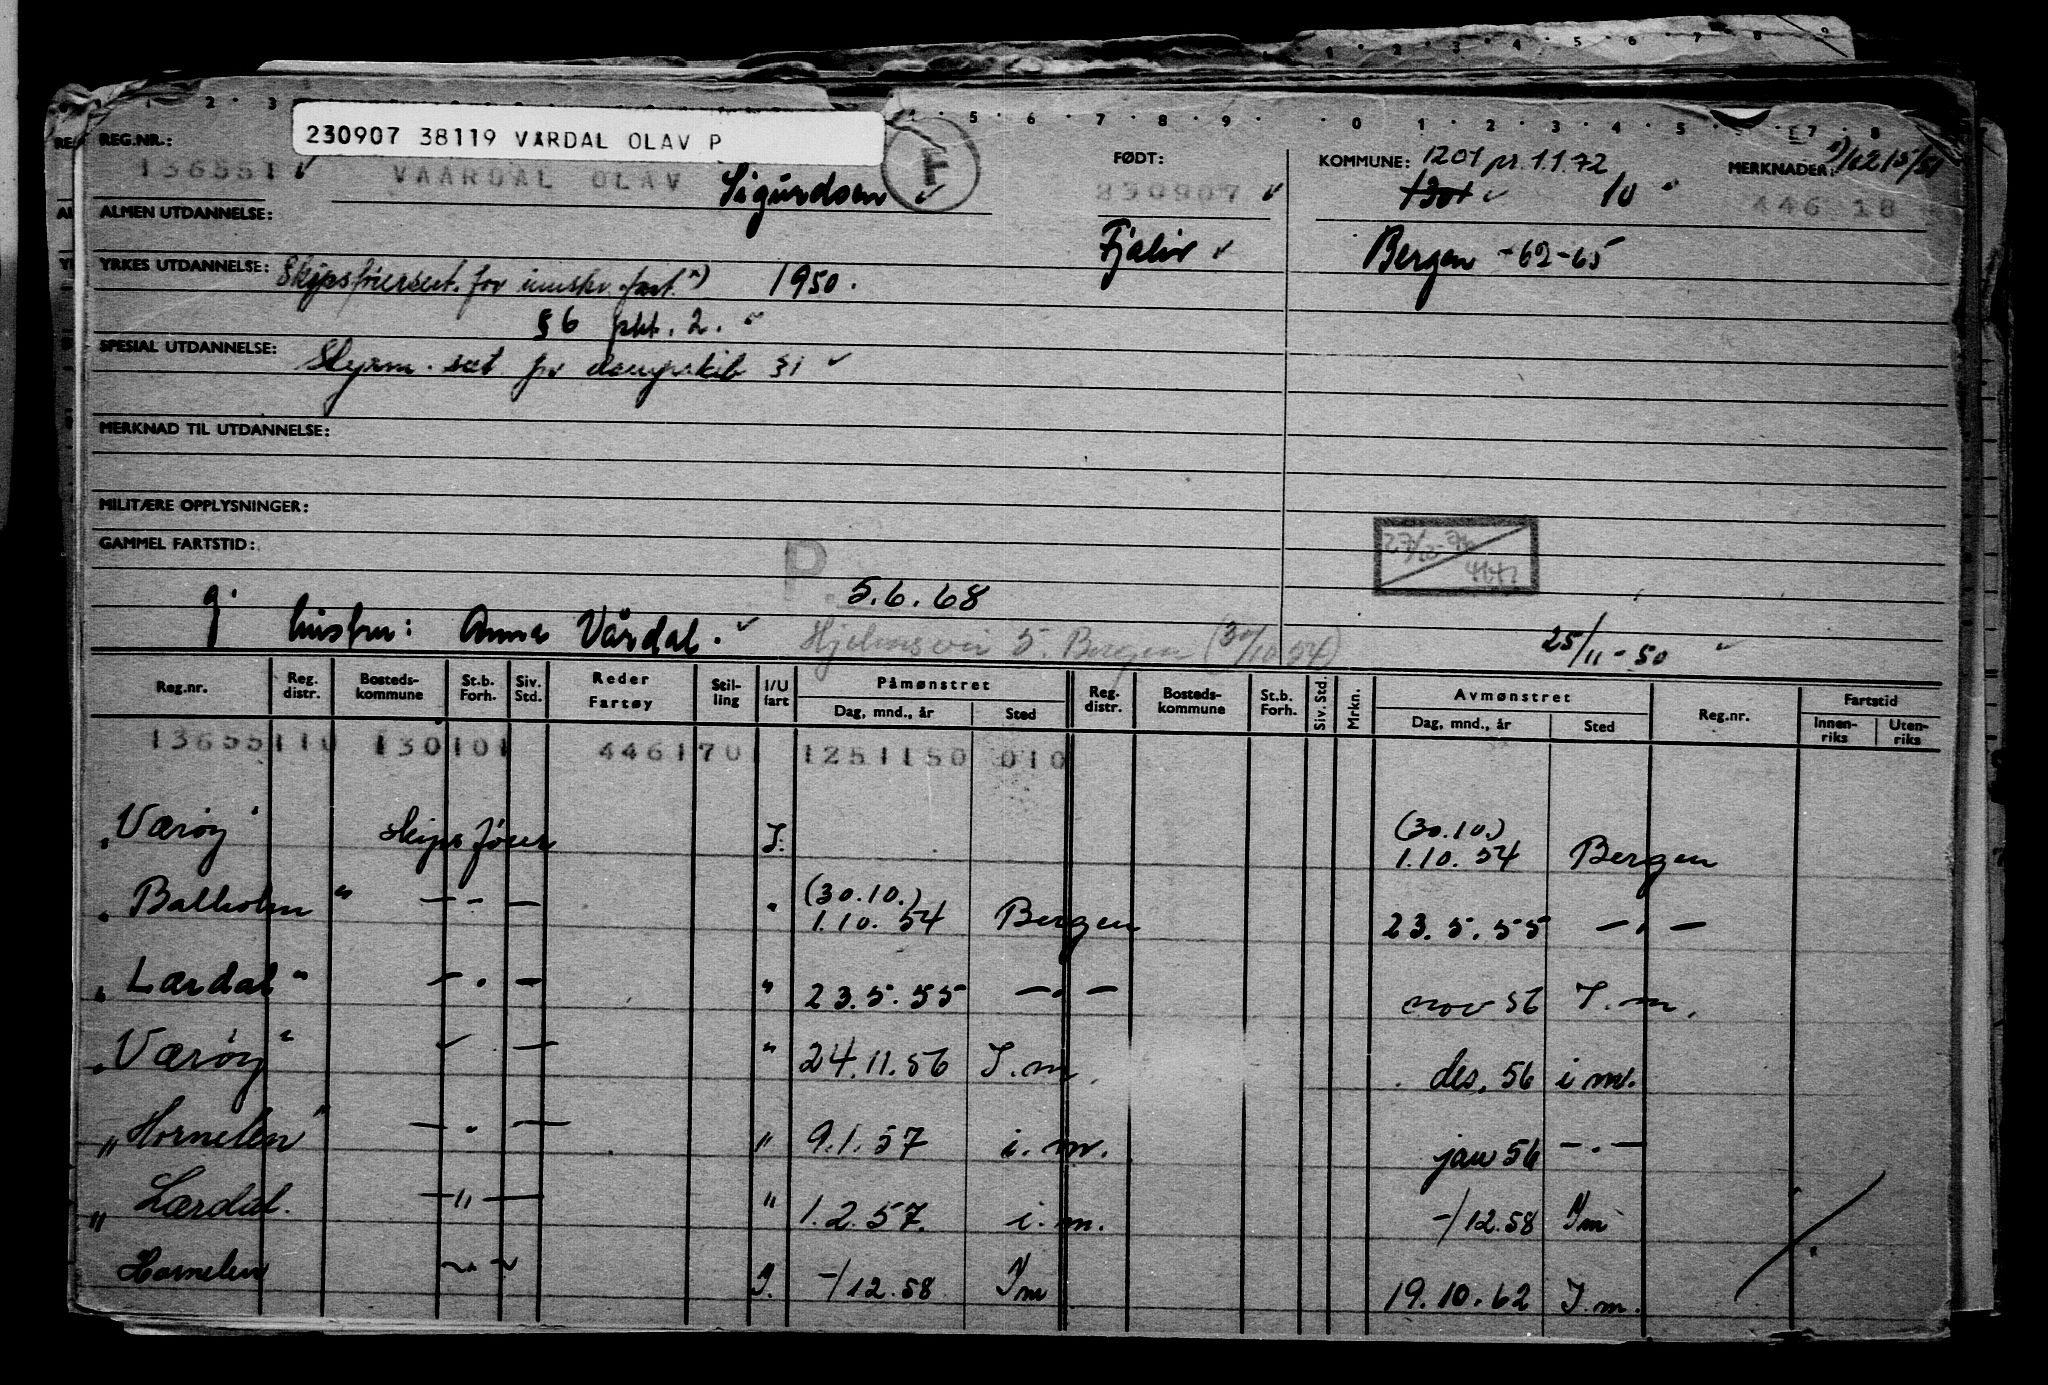 1 · 2 · 3 · 4 · 5 · 6 · 7 · 8 · 9
1 2 3
5 · 6 · 7 · 8 · 9 · · 0 · 1 · 2 · 3 · 4 · 5 7 · 8
230907 38119 VARDAL OLAV P
F
REG.NR.:
136551 ✓
VAARDAL OLAV Sigurdsen ✓
FØDT:
230907 ✓
KOMMUNE: 1201 pr. 1.1.72
1301 ✓ 10
MERKNADER:
446 18
ALMEN UTDANNELSE:
Fjaler ✓
Bergen -62-65
YRKES UTDANNELSE: Skipsførersert. for innskr. fart. 1950.
§6 pkt. 2.
SPESIAL UTDANNELSE: Styrm. sert for dampskib §1 ✓
MERKNAD TIL UTDANNELSE:
MILITÆRE OPPLYSNINGER:
GAMMEL FARTSTID:
P. 5.6.68
g. hustru: Anna Vårdal. ✓
Hjelmsvei 5. Bergen (30/10 54)
25/11-50
Reg.nr. Reg. distr. Bosteds-kommune St.b. Forh. Siv. Std. Reder Fartøy Stil-ling I/U fart Påmønstret Dag, mnd., år Sted Reg. distr. Bosteds-kommune St.b. Forh. Siv. Std. Mrkn. Avmønstret Dag, mnd., år Sted Reg.nr. Fartstid Innen-riks Uten-riks
13655110 130101 446170 1251150 010
"Værøy" Skipsfører I. (30.10.) 1.10.54 Bergen
"Balholm" — - — " (30.10.) 1.10.54 Bergen 23.5.55 — . —
"Lærdal" — . — " 23.5.55 — . — nov 56 I.m.
"Værøy" — " 24.11.56 I.m. des. 56 i m.
"Hornelen" — . — " 9.1.57 i.m. jan 56 — . —
"Lærdal. — " — " 1.2.57. i.m. -/12.58 Im
Hornelen I. -/12.58 Im 19.10.62 I.m.